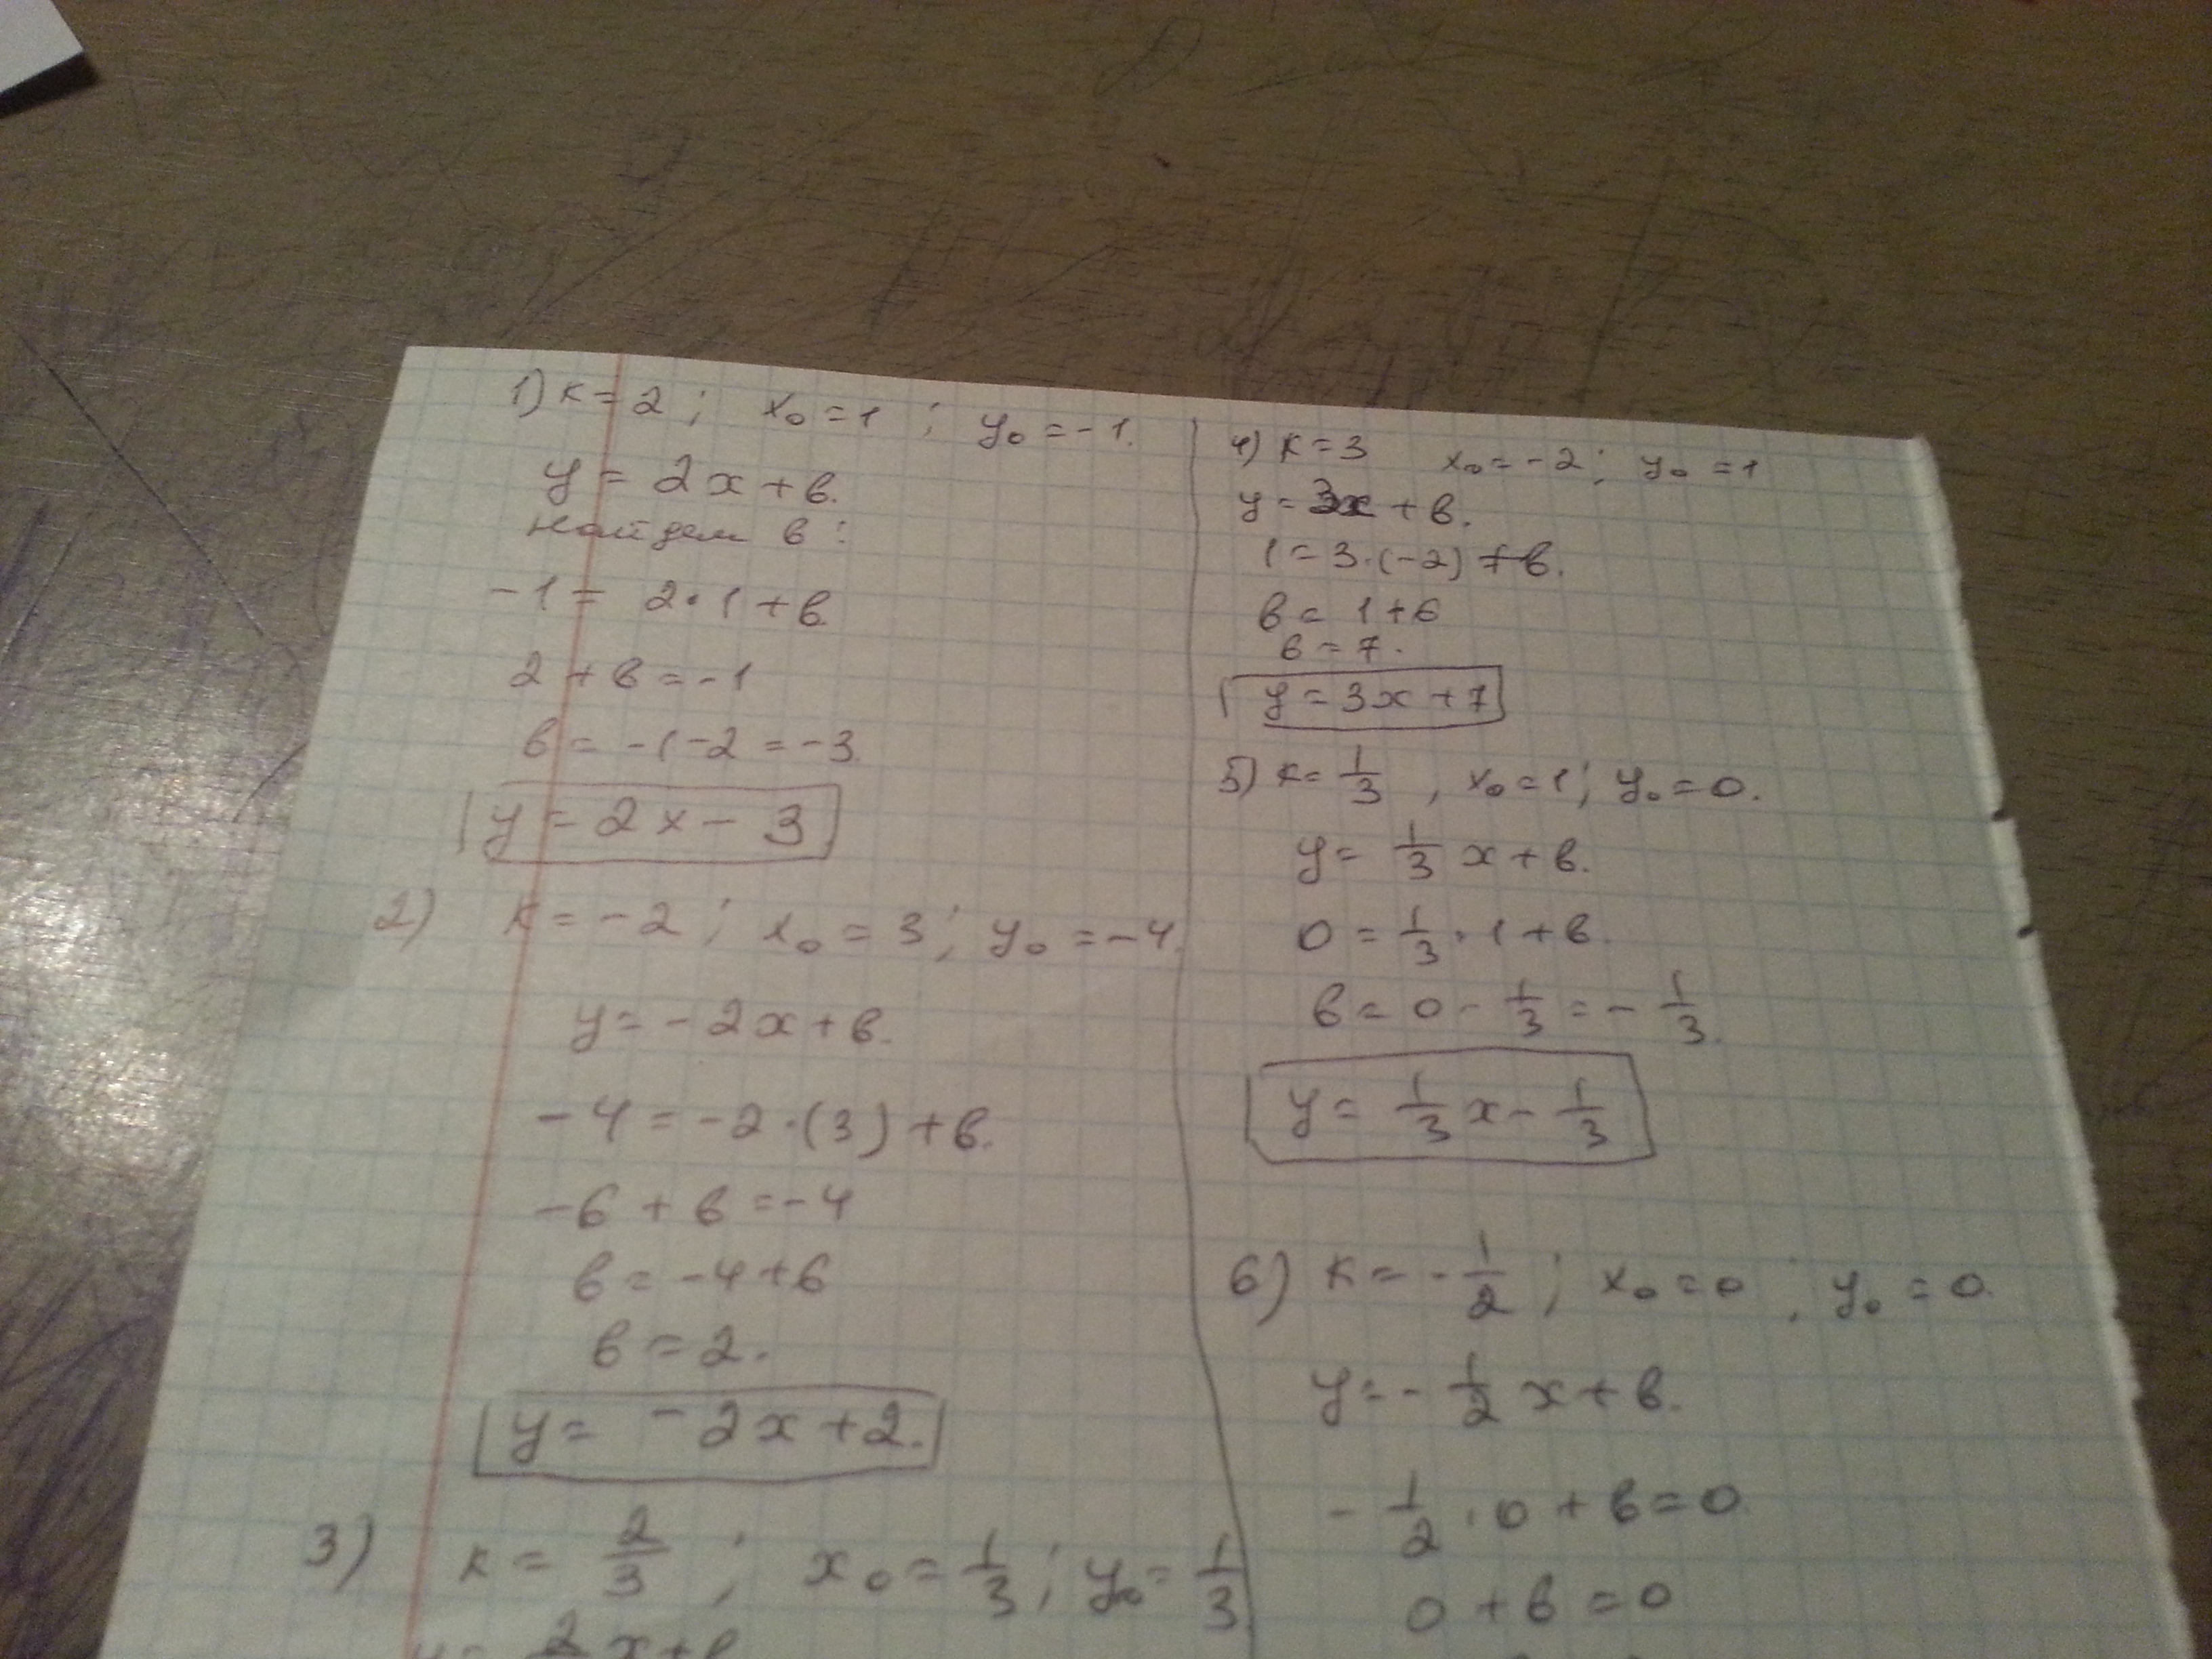 1) к = 2 ; x₀ = 1 ; y₀ = -1.
y = 2x + в.
найдем в :
-1 = 2·1 + в.
2 + в = -1
в = -1 -2 = -3.
y = 2x - 3
2) к = -2 ; x₀ = 3 ; y₀ = -4.
y = -2x + в.
-4 = -2·(3) + в.
-6 + в = -4
в = -4 + 6
в = 2.
y = -2x + 2.
3) к = 2/3 ; x₀ = 1/3 ; y₀ = 1/3
y = 2/3 x + в
4) к = 3 x₀ = -2 ; y₀ = 1
y = 3x + в.
1 = 3·(-2) + в.
в = 1 + 6
в = 7.
y = 3x + 7
5) к = 1/3 , x₀ = 1 ; y₀ = 0.
y = 1/3 x + в.
0 = 1/3 · 1 + в.
в = 0 - 1/3 = - 1/3.
y = 1/3 x - 1/3
6) к = - 1/2 ; x₀ = 0 ; y₀ = 0.
y = - 1/2 x + в.
- 1/2 · 0 + в = 0
0 + в = 0